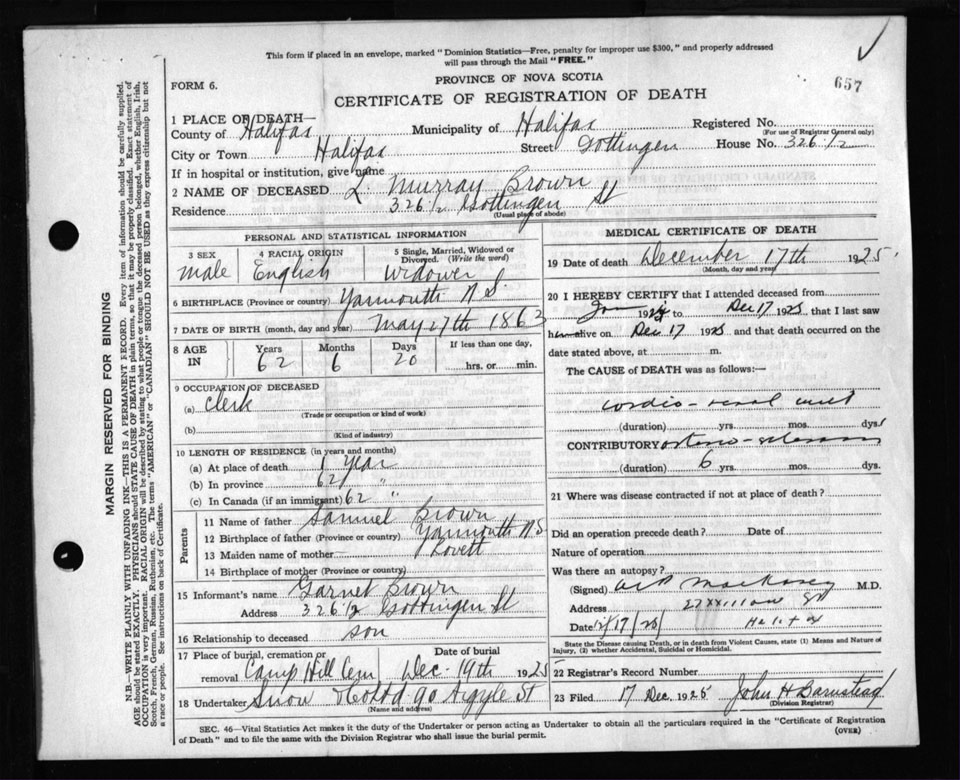 This form if placed in an envelope, marked "Dominion Statistics—Free, penalty for improper use $300," and properly addressed
will pass through the Mail "FREE."
FORM 6.
PROVINCE OF NOVA SCOTIA
657
CERTIFICATE OF REGISTRATION OF DEATH
1 PLACE OF DEATH—
County of Halifax Municipality of Halifax Registered No.
(For use of Registrar General only)
City or Town Halifax Street Gottingen House No. 326 1/2
If in hospital or institution, give name
2 NAME OF DECEASED L. Murray Brown
Residence 326 1/2 Gottingen St
(Usual place of abode)
PERSONAL AND STATISTICAL INFORMATION
3 SEX 4 RACIAL ORIGIN 5 Single, Married, Widowed or Divorced. (Write the word)
male English Widower
6 BIRTHPLACE (Province or country) Yarmouth N.S.
7 DATE OF BIRTH (month, day and year) May 27th 1863
8 AGE IN Years Months Days If less than one day,
62 6 20 hrs. or min.
9 OCCUPATION OF DECEASED
(a) Clerk
(Trade or occupation or kind of work)
(b)
(Kind of industry)
10 LENGTH OF RESIDENCE (in years and months)
(a) At place of death 1 Year
(b) In province 62 "
(c) In Canada (if an immigrant) 62 "
Parents
11 Name of father Samuel Brown
12 Birthplace of father (Province or country) Yarmouth N S
13 Maiden name of mother Lovett
14 Birthplace of mother (Province or country)
15 Informant's name Garnet Brown
Address 326 1/2 Gottingen St
16 Relationship to deceased son
17 Place of burial, cremation or Date of burial
removal Camp Hill Cem Dec. 19th 1925
18 Undertaker Snow Argyle St
(Name and address)
MEDICAL CERTIFICATE OF DEATH
19 Date of death December 17th 1925
(Month, day and year)
20 I HEREBY CERTIFY that I attended deceased from
Jan 192 to Dec 17 1925 that I last saw
h alive on Dec 17 1925 and that death occurred on the
date stated above, at m.
The CAUSE of DEATH was as follows:—
cardio-renal
(duration) yrs. mos. dys.
CONTRIBUTORY
(duration) 6 yrs. mos. dys.
21 Where was disease contracted if not at place of death?
Did an operation precede death? Date of
Nature of operation
Was there an autopsy?
(Signed) M.D.
Address
Date 12/17/25 Halifax
State the Disease causing Death, or in death from Violent Causes, state (1) Means and Nature of
Injury, (2) whether Accidental, Suicidal or Homicidal.
22 Registrar's Record Number
23 Filed 17 Dec. 1925 John H Barnstead
(Division Registrar)
SEC. 46—Vital Statistics Act makes it the duty of the Undertaker or person acting as Undertaker to obtain all the particulars required in the "Certificate of Registration
of Death" and to file the same with the Division Registrar who shall issue the burial permit.
(OVER)
MARGIN RESERVED FOR BINDING
N.B.—WRITE PLAINLY WITH UNFADING INK—THIS IS A PERMANENT RECORD. Every item of information should be carefully supplied.
AGE should be stated EXACTLY. PHYSICIANS should STATE CAUSE OF DEATH in plain terms, so that it may be properly classified. Exact statement of
OCCUPATION is very important. RACIAL ORIGIN will be described by stating to what people or tongue the deceased person belonged, whether English, Irish,
Scotch, French, German, Russian, Ruthenian, etc. The terms "AMERICAN" or "CANADIAN" SHOULD NOT BE USED as they express citizenship but not
a race or people. See instructions on back of Certificate.